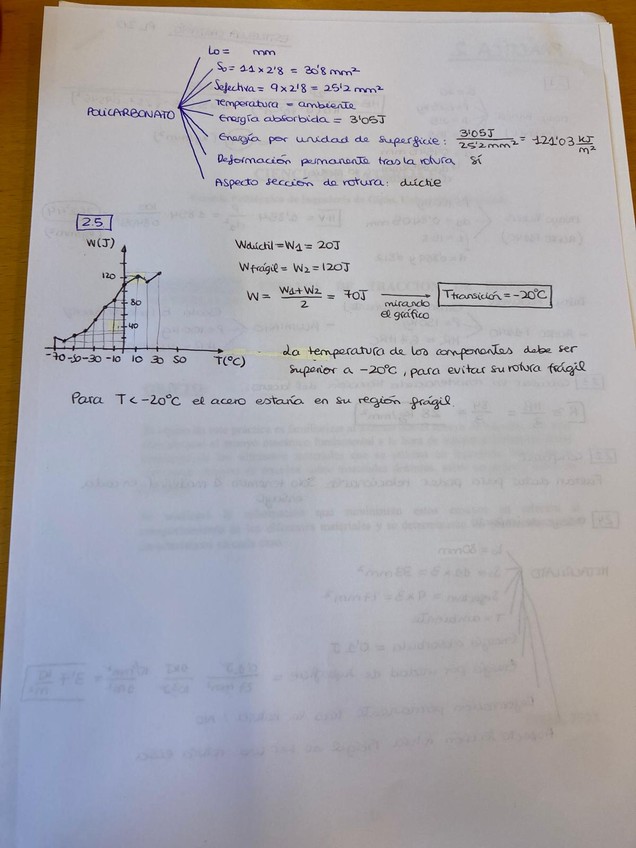 Lo = mm
So = 11 x 2'8 = 30'8 mm²
Sefectiva = 9 x 2'8 = 25'2 mm²
Temperatura = ambiente
POLICARBONATO
Energía absorbida = 3'05J
Energía por unidad de superficie: 3'05J / 25'2mm² = 121'03 KJ/m²
Deformación permanente tras la rotura Sí
Aspecto sección de rotura: dúctie
2.5
W(J)
120
80
40
-70 -50 -30 -11 10 30 50 T(°C)
Wdúctil = W1 = 20J
Wfrágil = W2 = 120J
W = W1+W2 / 2 = 70J mirando el gráfico Ttransición = -20°C
La temperatura de los componentes debe ser
superior a -20°C, para evitar su rotura frágil
Para T < -20°C el acero estaría en su región frágil